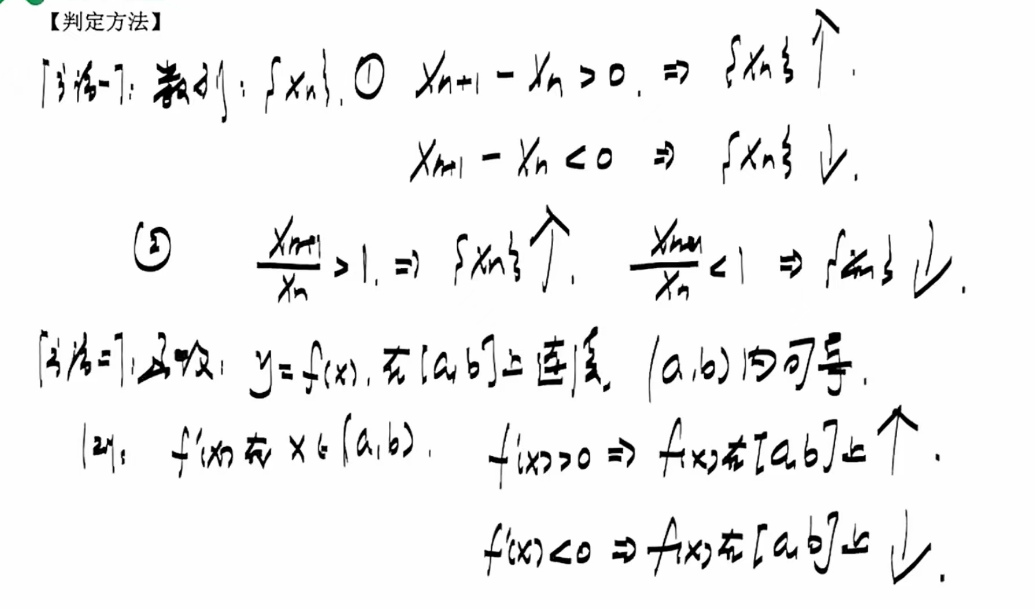 【判定方法】
「方法一」:数列:{Xn}. ① Xn+1 - Xn > 0. ⇒ {Xn}↑.
Xn+1 - Xn < 0 ⇒ {Xn}↓.
② Xn+1/Xn > 1. ⇒ {Xn}↑. Xn+1/Xn < 1 ⇒ {Xn}↓.
「方法二」:函数: y=f(x). 在[a,b]上连续. (a,b)内可导.
则: f'(x)在 x∈(a,b). f'(x)>0 ⇒ f(x)在[a,b]上↑.
f'(x)<0 ⇒ f(x)在[a,b]上↓.